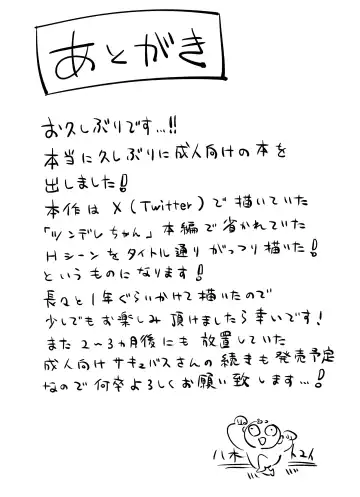 あとがき
お久しぶりです…!!
本当に久しぶりに成人向けの本を
出しました!
本作は X(Twitter)で描いていた
「ツンデレちゃん」本編で省かれていた
Hシーンをタイトル通りがっつり描いた!
というものになります!
長々と1年ぐらいかけて描いたので
少しでもお楽しみ頂けましたら幸いです!
また2〜3ヵ月後にも放置していた
成人向けサキュバスさんの続きも発売予定
なので何卒よろしくお願い致します…!
八木